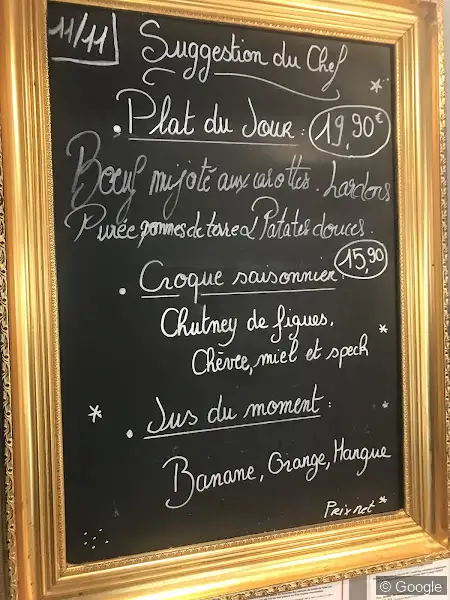 11/11
Suggestion du Chef
. Plat du Jour : 19,90€
Bœuf mijoté aux carottes. Lardons
Purée pommes de terre & Patates douces.
. Croque saisonnier 15,90
Chutney de figues,
Chèvre, miel et speck
. Jus du moment :
Banane, Orange, Mangue
Prix net
© Google